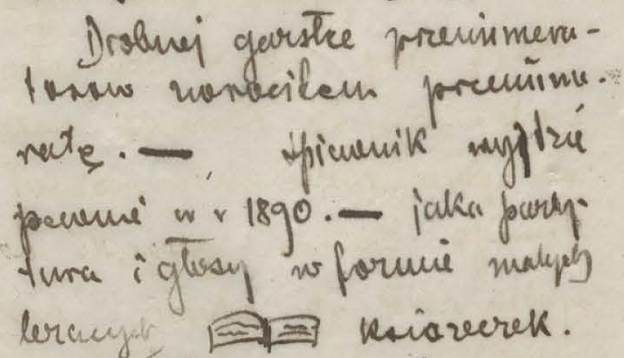 Drobnej garstce prenumera-
torów zwróciłem prenume-
ratę. — Śpiewnik wyjdzie
pewnie w r 1890. — jako party-
tura i głosy w formie małych
książeczek.